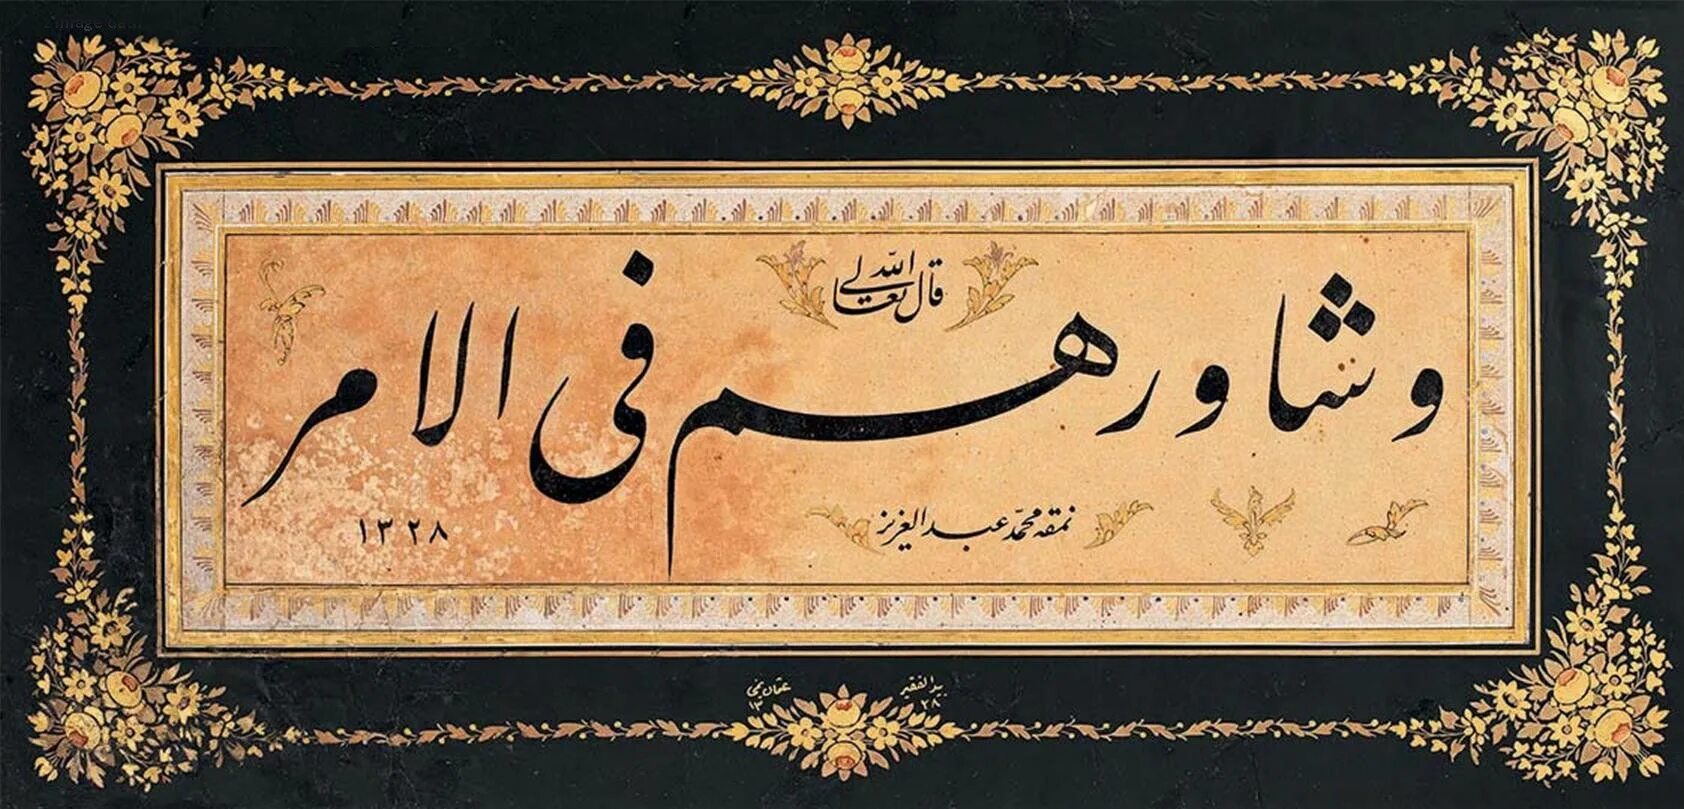 قال الله تعالى
وشاورهم فى الامر
نمقه محمد عبد العزيز
١٣٢٨
يد الفقير
٢٨
١٣